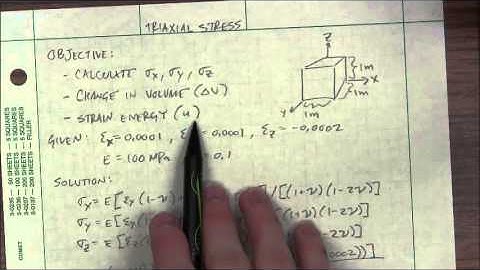 TRIAXIAL STRESS
OBJECTIVE:
- CALCULATE σx, σy, σz
- CHANGE IN VOLUME (ΔV)
- STRAIN ENERGY (u)
GIVEN: εx = 0,0001, ε = 0,0001, εz = -0,0002
E = 100 MPa = 0,1
SOLUTION:
σx = E[εx(1-ν) ]/[(1+ν)(1-2ν)]
σy = E[εy(1- (1-2ν)]
σz = E[εz( -2ν)]
002))]
Z
X
Y
1m
1m
1m
COMET
3-0235 — 50 SHEETS — 5 SQUARES
3-0236 — 100 SHEETS — 5 SQUARES
3-0237 — 200 SHEETS — 5 SQUARES
3-0137 — 200 SHEETS — FILLER